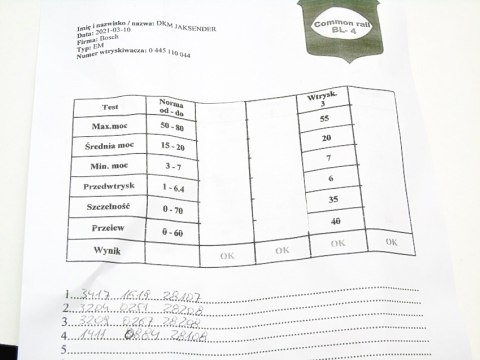 Imię i nazwisko / nazwa: DKM JAKSENDER
Data: 2021-03-10
Firma: Bosch
Typ: EM
Numer wtryskiwacza: 0 445 110 044
Common rail
BL- 4
Test Norma od - do Wtrysk. 3
Max.moc 50 - 80 55
Średnia moc 15 - 20 20
Min. moc 3 - 7 7
Przedwtrysk 1 - 6.4 6
Szczelność 0 - 70 35
Przelew 0 - 60 40
Wynik OK OK OK OK
1. 3417 1619 28107
2. 3204 0251 28208
3. 3209 0267
4. 1411 28108
5.